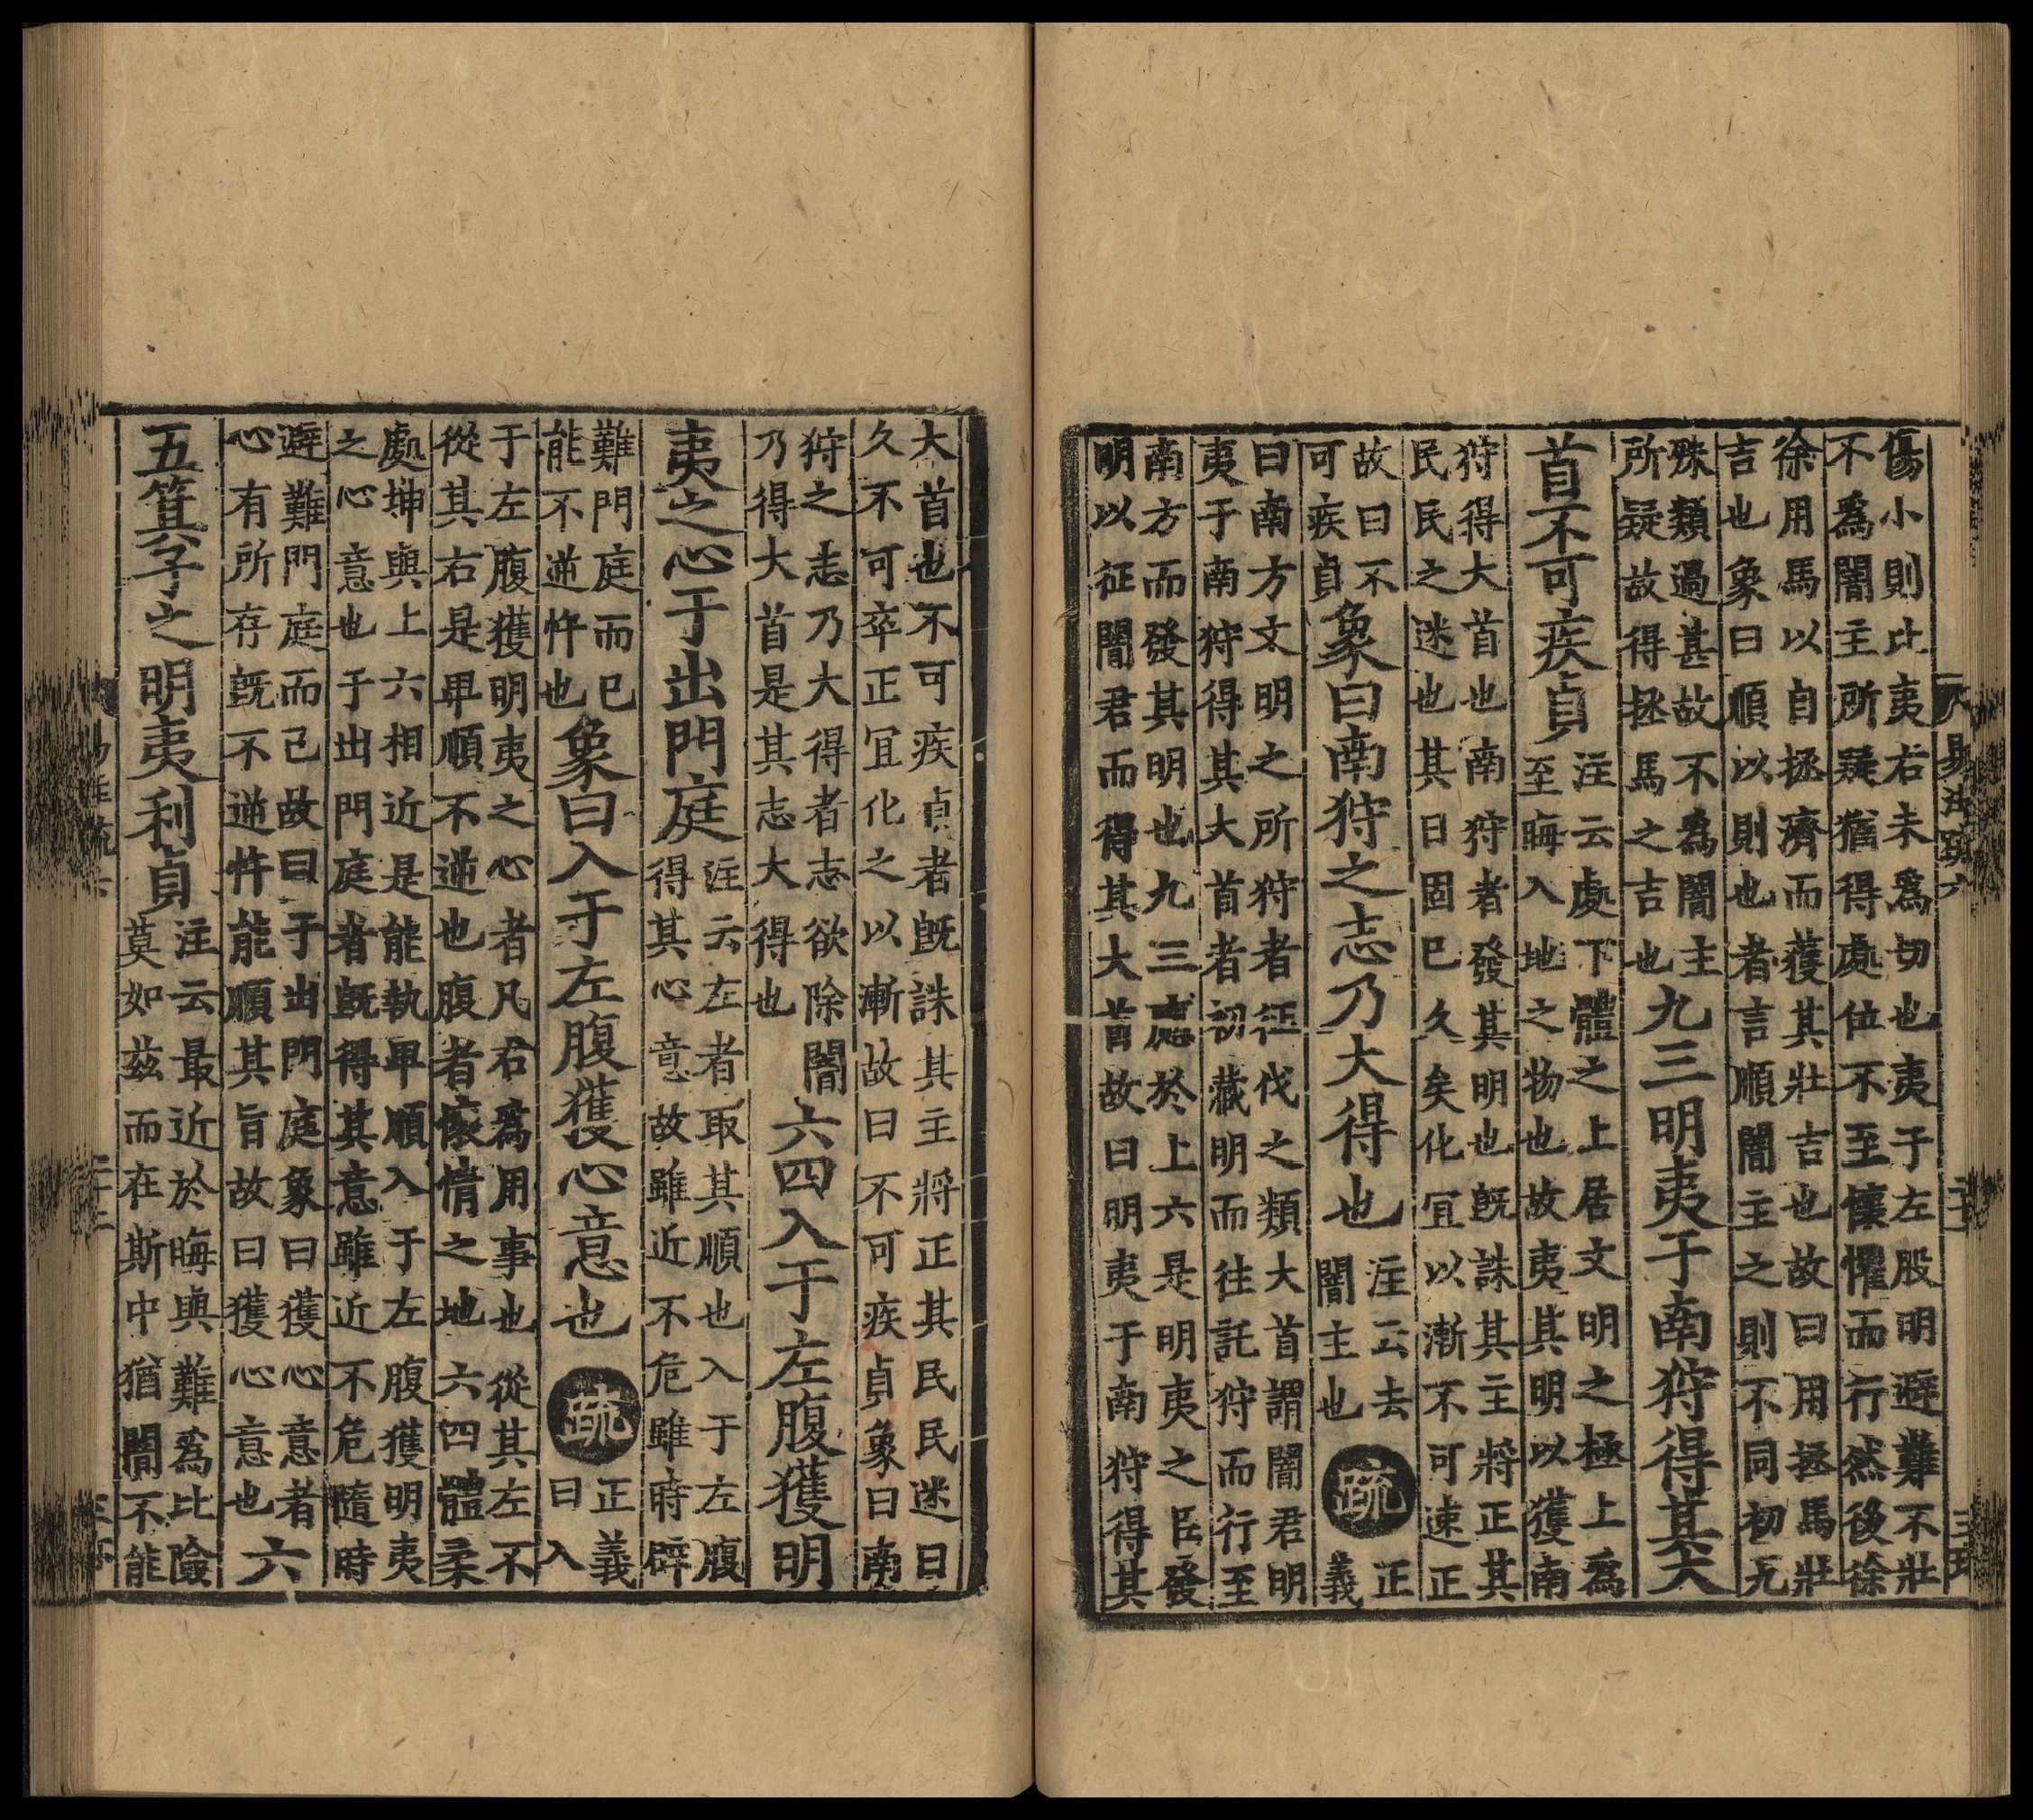 易注疏六
傷小則比夷右未爲切也夷于左股明避難不壯
不爲闇主所疑猶得處位不至懷懼而行然後徐
徐用馬以自拯濟而獲其壯吉也故曰用拯馬壯
吉也象曰順以則也者言順闇主之則不同初九
殊類過甚故不爲闇主
所疑故得拯馬之吉也
九三明夷于南狩得其大
首不可疾貞
注云處下體之上居文明之極上爲
至晦入地之物也故夷其明以獲南
狩得大首也南狩者發其明也旣誅其主將正其
民民之迷也其日固已久矣化宜以漸不可速正
故曰不
可疾貞
象曰南狩之志乃大得也
注云去
闇主也
疏
正
義
曰南方文明之所狩者征伐之類大首謂闇君明
夷于南狩得其大首者初藏明而往託狩而行至
南方而發其明也九三應於上六是明夷之臣發
明以征闇君而得其大首故曰明夷于南狩得其
大首也不可疾貞者旣誅其主將正其民民迷日
久不可卒正宜化之以漸故曰不可疾貞象曰南
狩之志乃大得者志欲除闇
乃得大首是其志大得也
六四入于左腹獲明
夷之心于出門庭
注云左者取其順也入于左腹
得其心意故雖近不危雖時辟
難門庭而已
能不逆忤也
象曰入于左腹獲心意也
疏
正義
曰入
于左腹獲明夷之心者凡右爲用事也從其左不
從其右是卑順不逆也腹者懷情之地六四體柔
處坤與上六相近是能執卑順入于左腹獲明夷
之心意也于出門庭者旣得其意雖近不危隨時
避難門庭而已故曰于出門庭象曰獲心意者
心有所存旣不逆忤能順其旨故曰獲心意也
六
五箕子之明夷利貞
注云最近於晦與難爲比險
莫如茲而在斯中猶闇不能